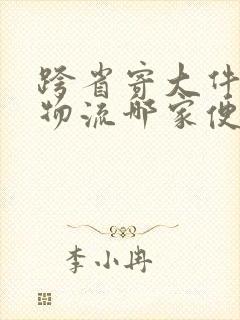 跨省寄大件
物流哪家便
李小冉